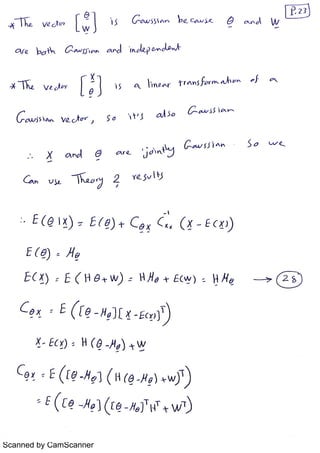 P.23
* The vector [θ W] is Gaussian because θ and W
are both Gaussian and independent
* The vector [X θ] is a linear transformation of a
Gaussian vector, so it's also Gaussian
∴ X and θ are jointly Gaussian. So we
Can use Theory 2 results
∴ E(θ|X) = E(θ) + Cθx Cxx⁻¹ (X - E(X))
E(θ) = Mθ
E(X) = E(Hθ+W) = HMθ + E(W) = HMθ → 28
Cθx = E([θ-Mθ][X-E(X)]ᵀ)
X-E(X) = H(θ-Mθ)+W
Cθx = E([θ-Mθ](H(θ-Mθ)+W)ᵀ)
= E([θ-Mθ]([θ-Mθ]ᵀHᵀ + Wᵀ)
Scanned by CamScanner